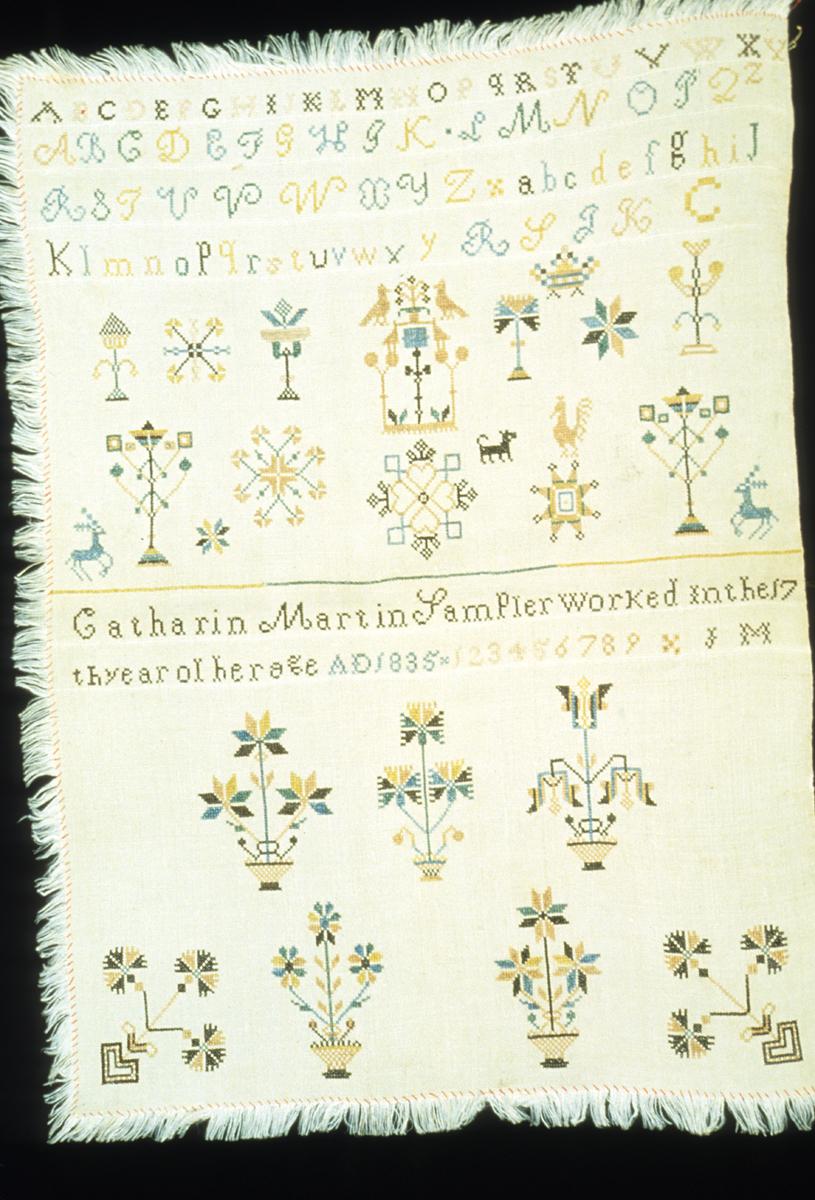 A B C D E F G H I J K L M N O P q R S T U V W X Y
A B C D E F G H I K L M N O P Q Z
R S T U V W X Y Z a b c d e f g h i J
K l m n o p q r s t u v w x y R S J K C
Catharin Martin Sampler worked in the 17
th year of her age AD 1835 1 2 3 4 5 6 7 8 9 J M